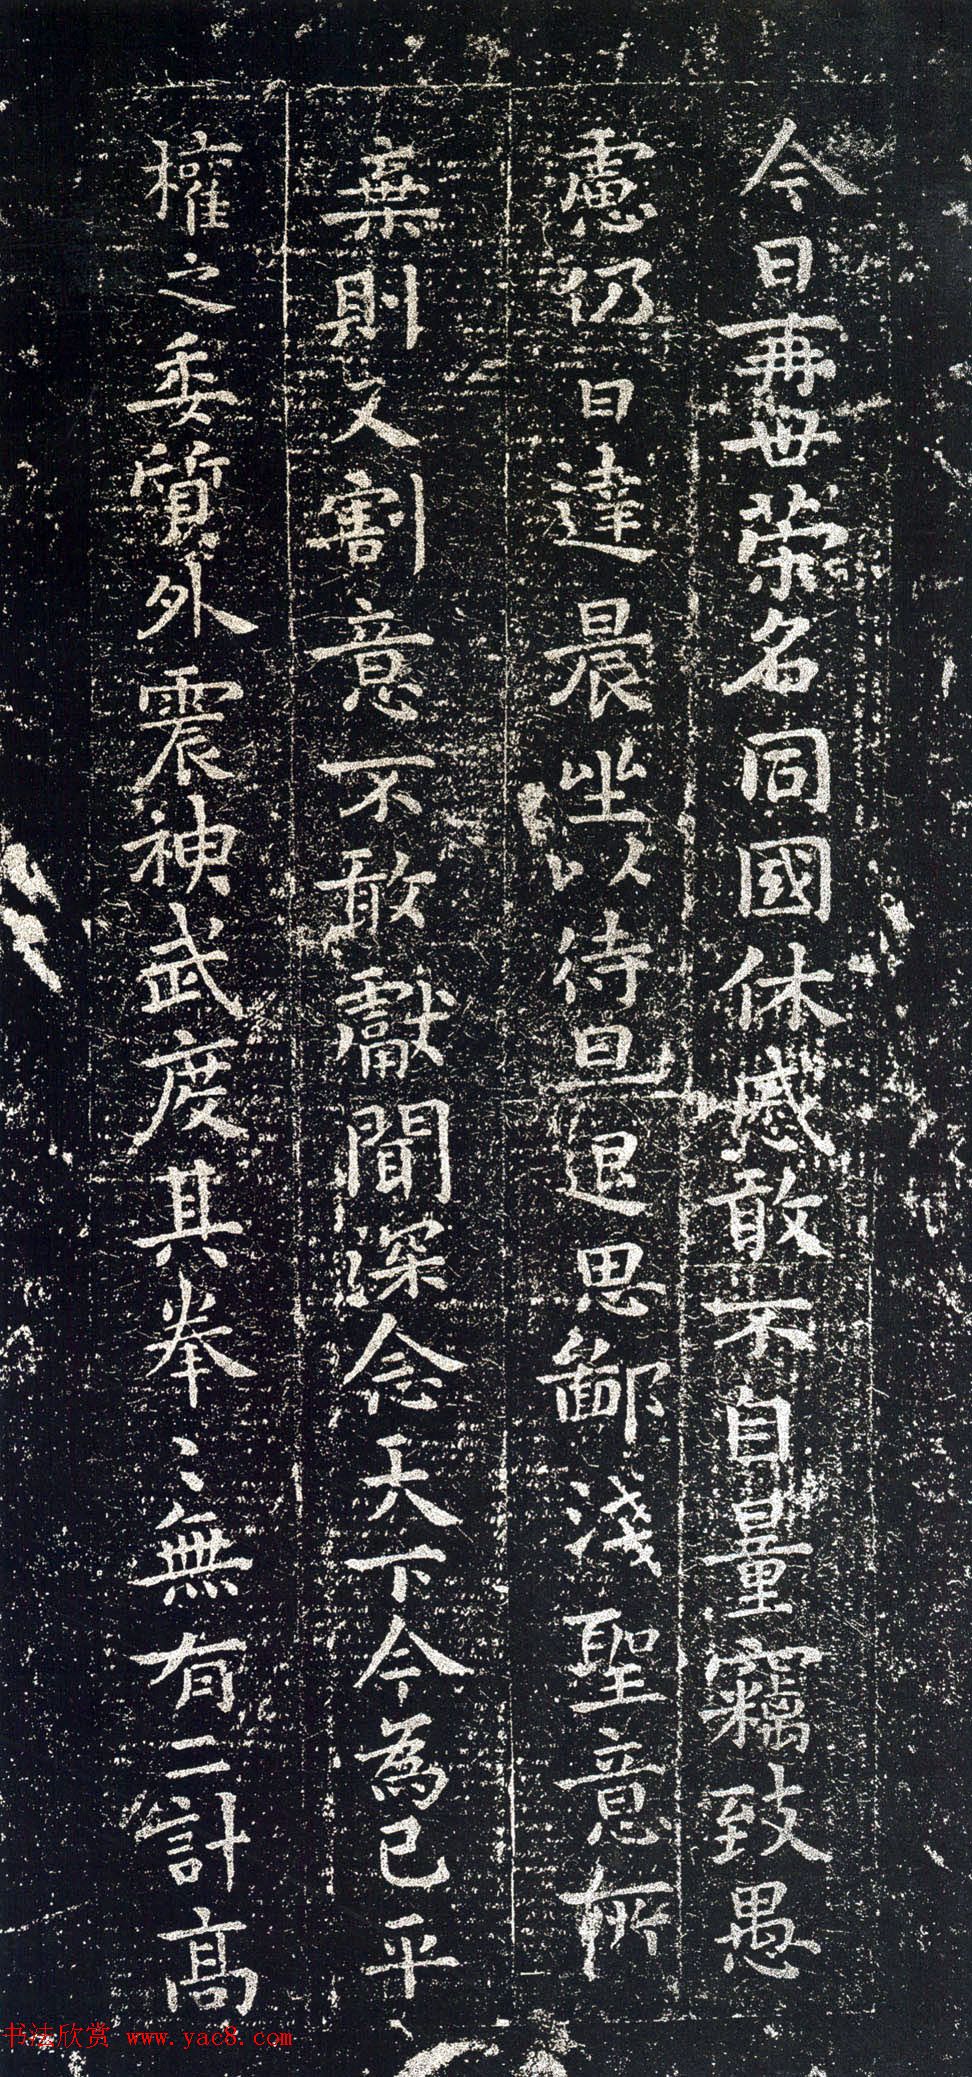 今日再世榮名同國休慼敢不自量竊致愚
慮仍日達晨坐以待旦退思鄙淺聖意所
棄則又割意不敢獻聞深念天下今為已平
權之委質外震神武度其拳〻無有二計高
书法欣赏 www.yac8.com